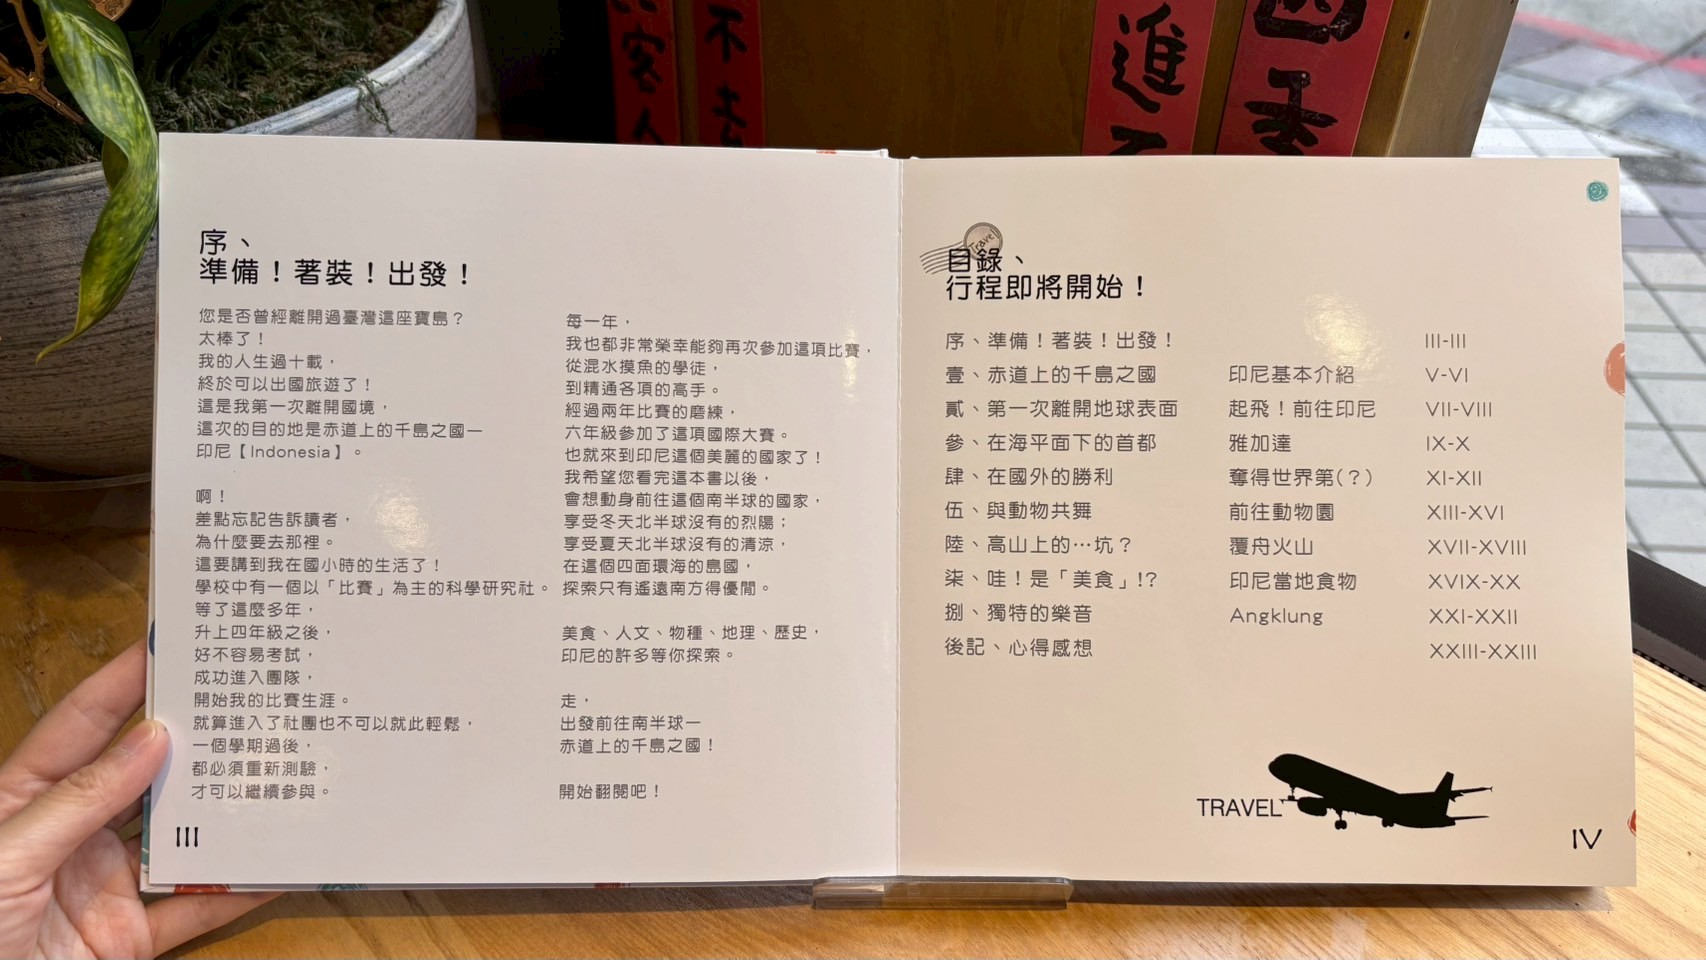 客人
不走
進
四季
序、
準備！著裝！出發！
您是否曾經離開過臺灣這座寶島？
太棒了！
我的人生過十載，
終於可以出國旅遊了！
這是我第一次離開國境，
這次的目的地是赤道上的千島之國—
印尼【Indonesia】。
啊！
差點忘記告訴讀者，
為什麼要去那裡。
這要講到我在國小時的生活了！
學校中有一個以「比賽」為主的科學研究社。
等了這麼多年，
升上四年級之後，
好不容易考試，
成功進入團隊，
開始我的比賽生涯。
就算進入了社團也不可以就此輕鬆，
一個學期過後，
都必須重新測驗，
才可以繼續參與。
每一年，
我也都非常榮幸能夠再次參加這項比賽，
從混水摸魚的學徒，
到精通各項的高手。
經過兩年比賽的磨練，
六年級參加了這項國際大賽。
也就來到印尼這個美麗的國家了！
我希望您看完這本書以後，
會想動身前往這個南半球的國家，
享受冬天北半球沒有的烈陽；
享受夏天北半球沒有的清涼，
在這個四面環海的島國，
探索只有遙遠南方得優閒。
美食、人文、物種、地理、歷史，
印尼的許多等你探索。
走，
出發前往南半球—
赤道上的千島之國！
開始翻閱吧！
III
Travel
目錄、
行程即將開始！
序、準備！著裝！出發！ III-III
壹、赤道上的千島之國 印尼基本介紹 V-VI
貳、第一次離開地球表面 起飛！前往印尼 VII-VIII
參、在海平面下的首都 雅加達 IX-X
肆、在國外的勝利 奪得世界第(？) XI-XII
伍、與動物共舞 前往動物園 XIII-XVI
陸、高山上的…坑？ 覆舟火山 XVII-XVIII
柒、哇！是「美食」!? 印尼當地食物 XVIX-XX
捌、獨特的樂音 Angklung XXI-XXII
後記、心得感想 XXIII-XXIII
TRAVEL
IV